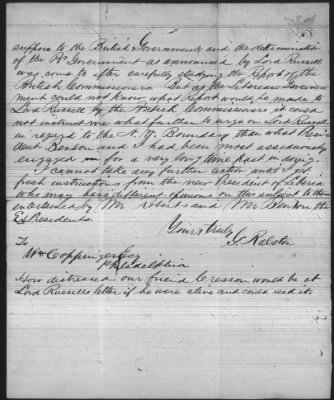 suppose to the British Government and the determination
of the Bh Government as announced by Lord Russell
was come to after carefully studying the Report of the
British Commissioner. But as the Liberian Govern
ment could not know what Report would be made to
Lord Russell by the British Commissioner it could
not instruct me what further to urge on Lord Russell
in regard to the N. W. Boundary than what Presi
dent Benson and I had been most assiduously
engaged for a very long time past in doing.
I cannot take any further action until I get
fresh instructions from the new President of Liberia
who may have different opinions on this subject to those
entertained by Mr Roberts and Mr Benson the
Ex Presidents.
Yours truly
G. Ralston
To
Wm Coppinger Esq
Philadelphia
How distressed our friend Cresson would be at
Lord Russell's letter if he were alive and could read it.